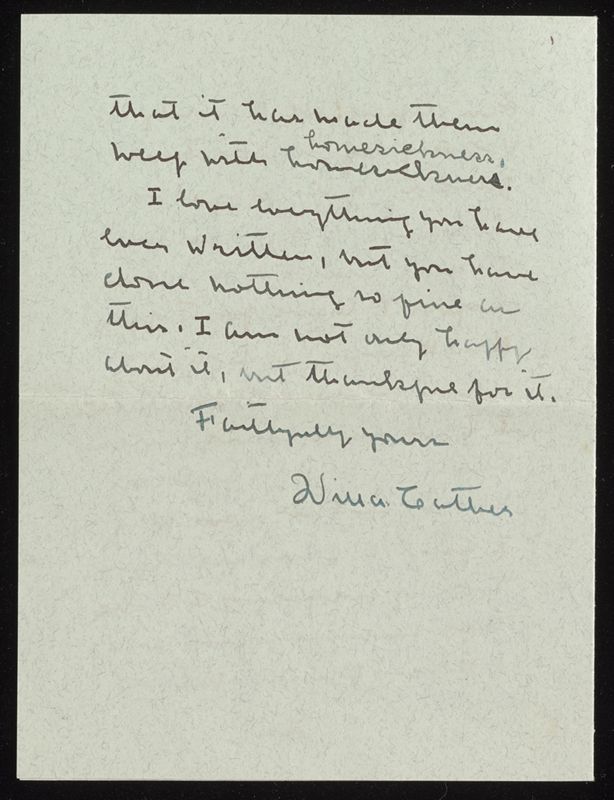 that it has made them
homesickness.
weep with homesickness.
I love everything you have
ever written, but you have
done nothing so fine as
this. I am not only happy
about it, but thankful for it.
Faithfully yours
Willa Cather